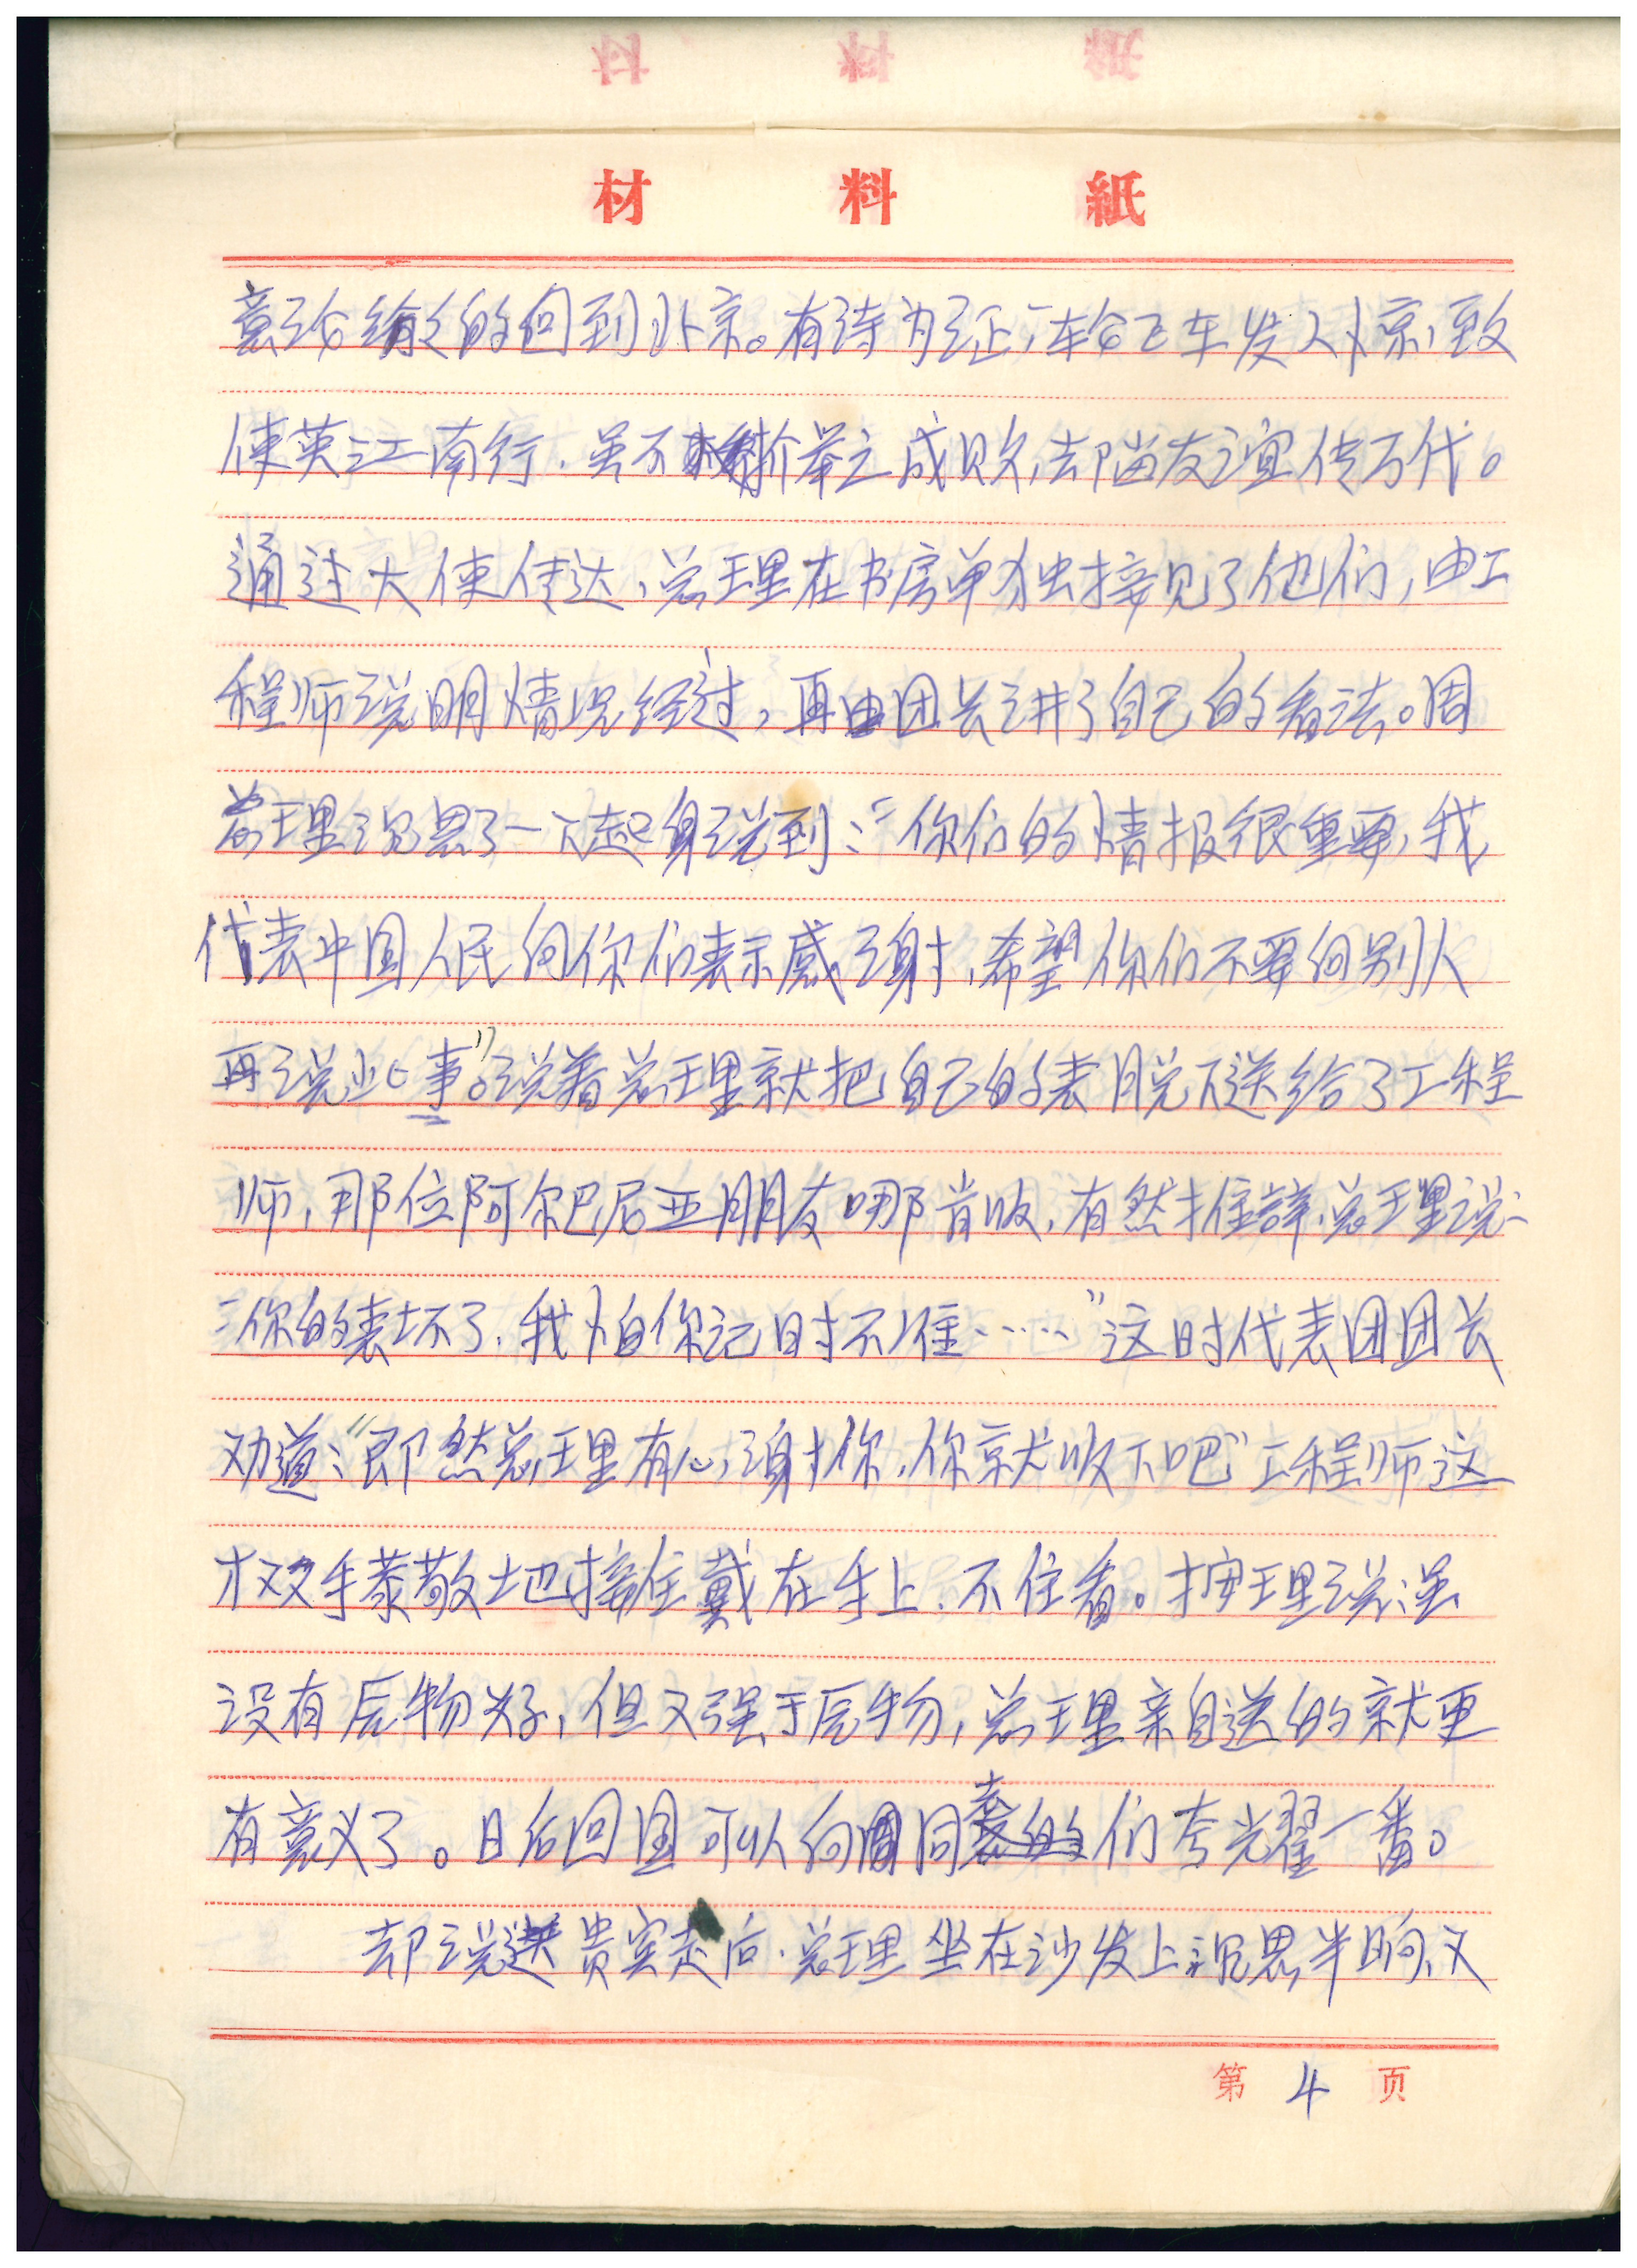 材料紙
意治缤纷的回到北京。有诗为证，车轮飞车发入京，致
使英江南行。虽不 价举之成败，却留友谊传万代。
通过大使传达，总理在书房单独接见了他们，由工
程师说明情况经过，再由团长讲了自己的看法。周
总理沉思了一下起身说到：“你们的情报很重要，我
代表中国人民向你们表示感谢，希望你们不要向别人
再说此事。”说着总理就把自己的表脱下送给了工程
师，那位阿尔巴尼亚朋友哪肯收，有然推辞，总理说：
“你的表坏了，我怕你记时不准……”这时代表团团长
劝道：“即然总理有心谢你，你就收下吧”工程师这
才双手恭敬地接住戴在手上，不住看。按理说虽
没有厚物好，但又强于厚物，总理亲自送的就更
有意义了。日后回国可以向同袭们夸光耀一番。
却说贵宾走后，总理坐在沙发上沉思半晌，又
第4页